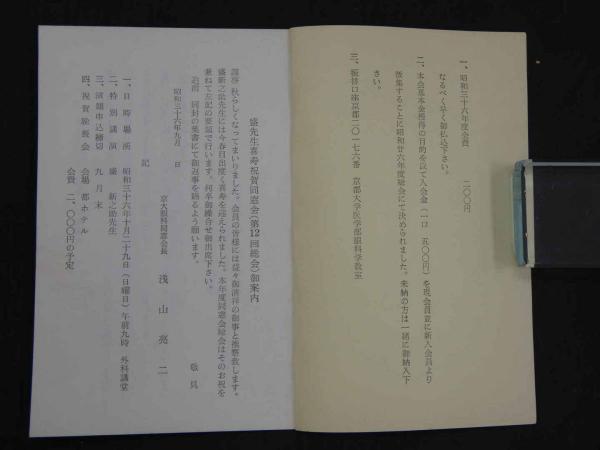 一、昭和三十六年度会費　二〇〇円
なるべく早く御払込下さい。
二、本会基本金獲得の目的を以て入会金(一口　五〇〇円)を現会員並に新入会員より
徴集することに昭和廿六年度総会にて決められました。未納の方は一緒に御納入下
さい。
三、振替口座京都二〇一七六番　京都大学医学部眼科学教室
盛先生喜寿祝賀同窓会(第12回総会)御案内
謹啓　秋らしくなってまいりました。会員の皆様には益々御清祥の御事と推察致します。
盛新之助先生には今春目出度く喜寿を迎えられました。本年度同窓会総会はそのお祝を
兼ねて左記の要領で行います。何卒御繰合せ御出席下さい。
追而　同封の葉書にて御返事を賜るよう願います。
敬具
昭和三十六年九月　日
京大眼科同窓会長　浅山亮二
記
一、日時場所　昭和三十六年十月二十九日(日曜日)午前九時　外科講堂
二、特別講演　盛　新之助先生
三、演題申込締切　九月末
四、祝賀晩餐会　会場　都ホテル
会費　二、〇〇〇円の予定